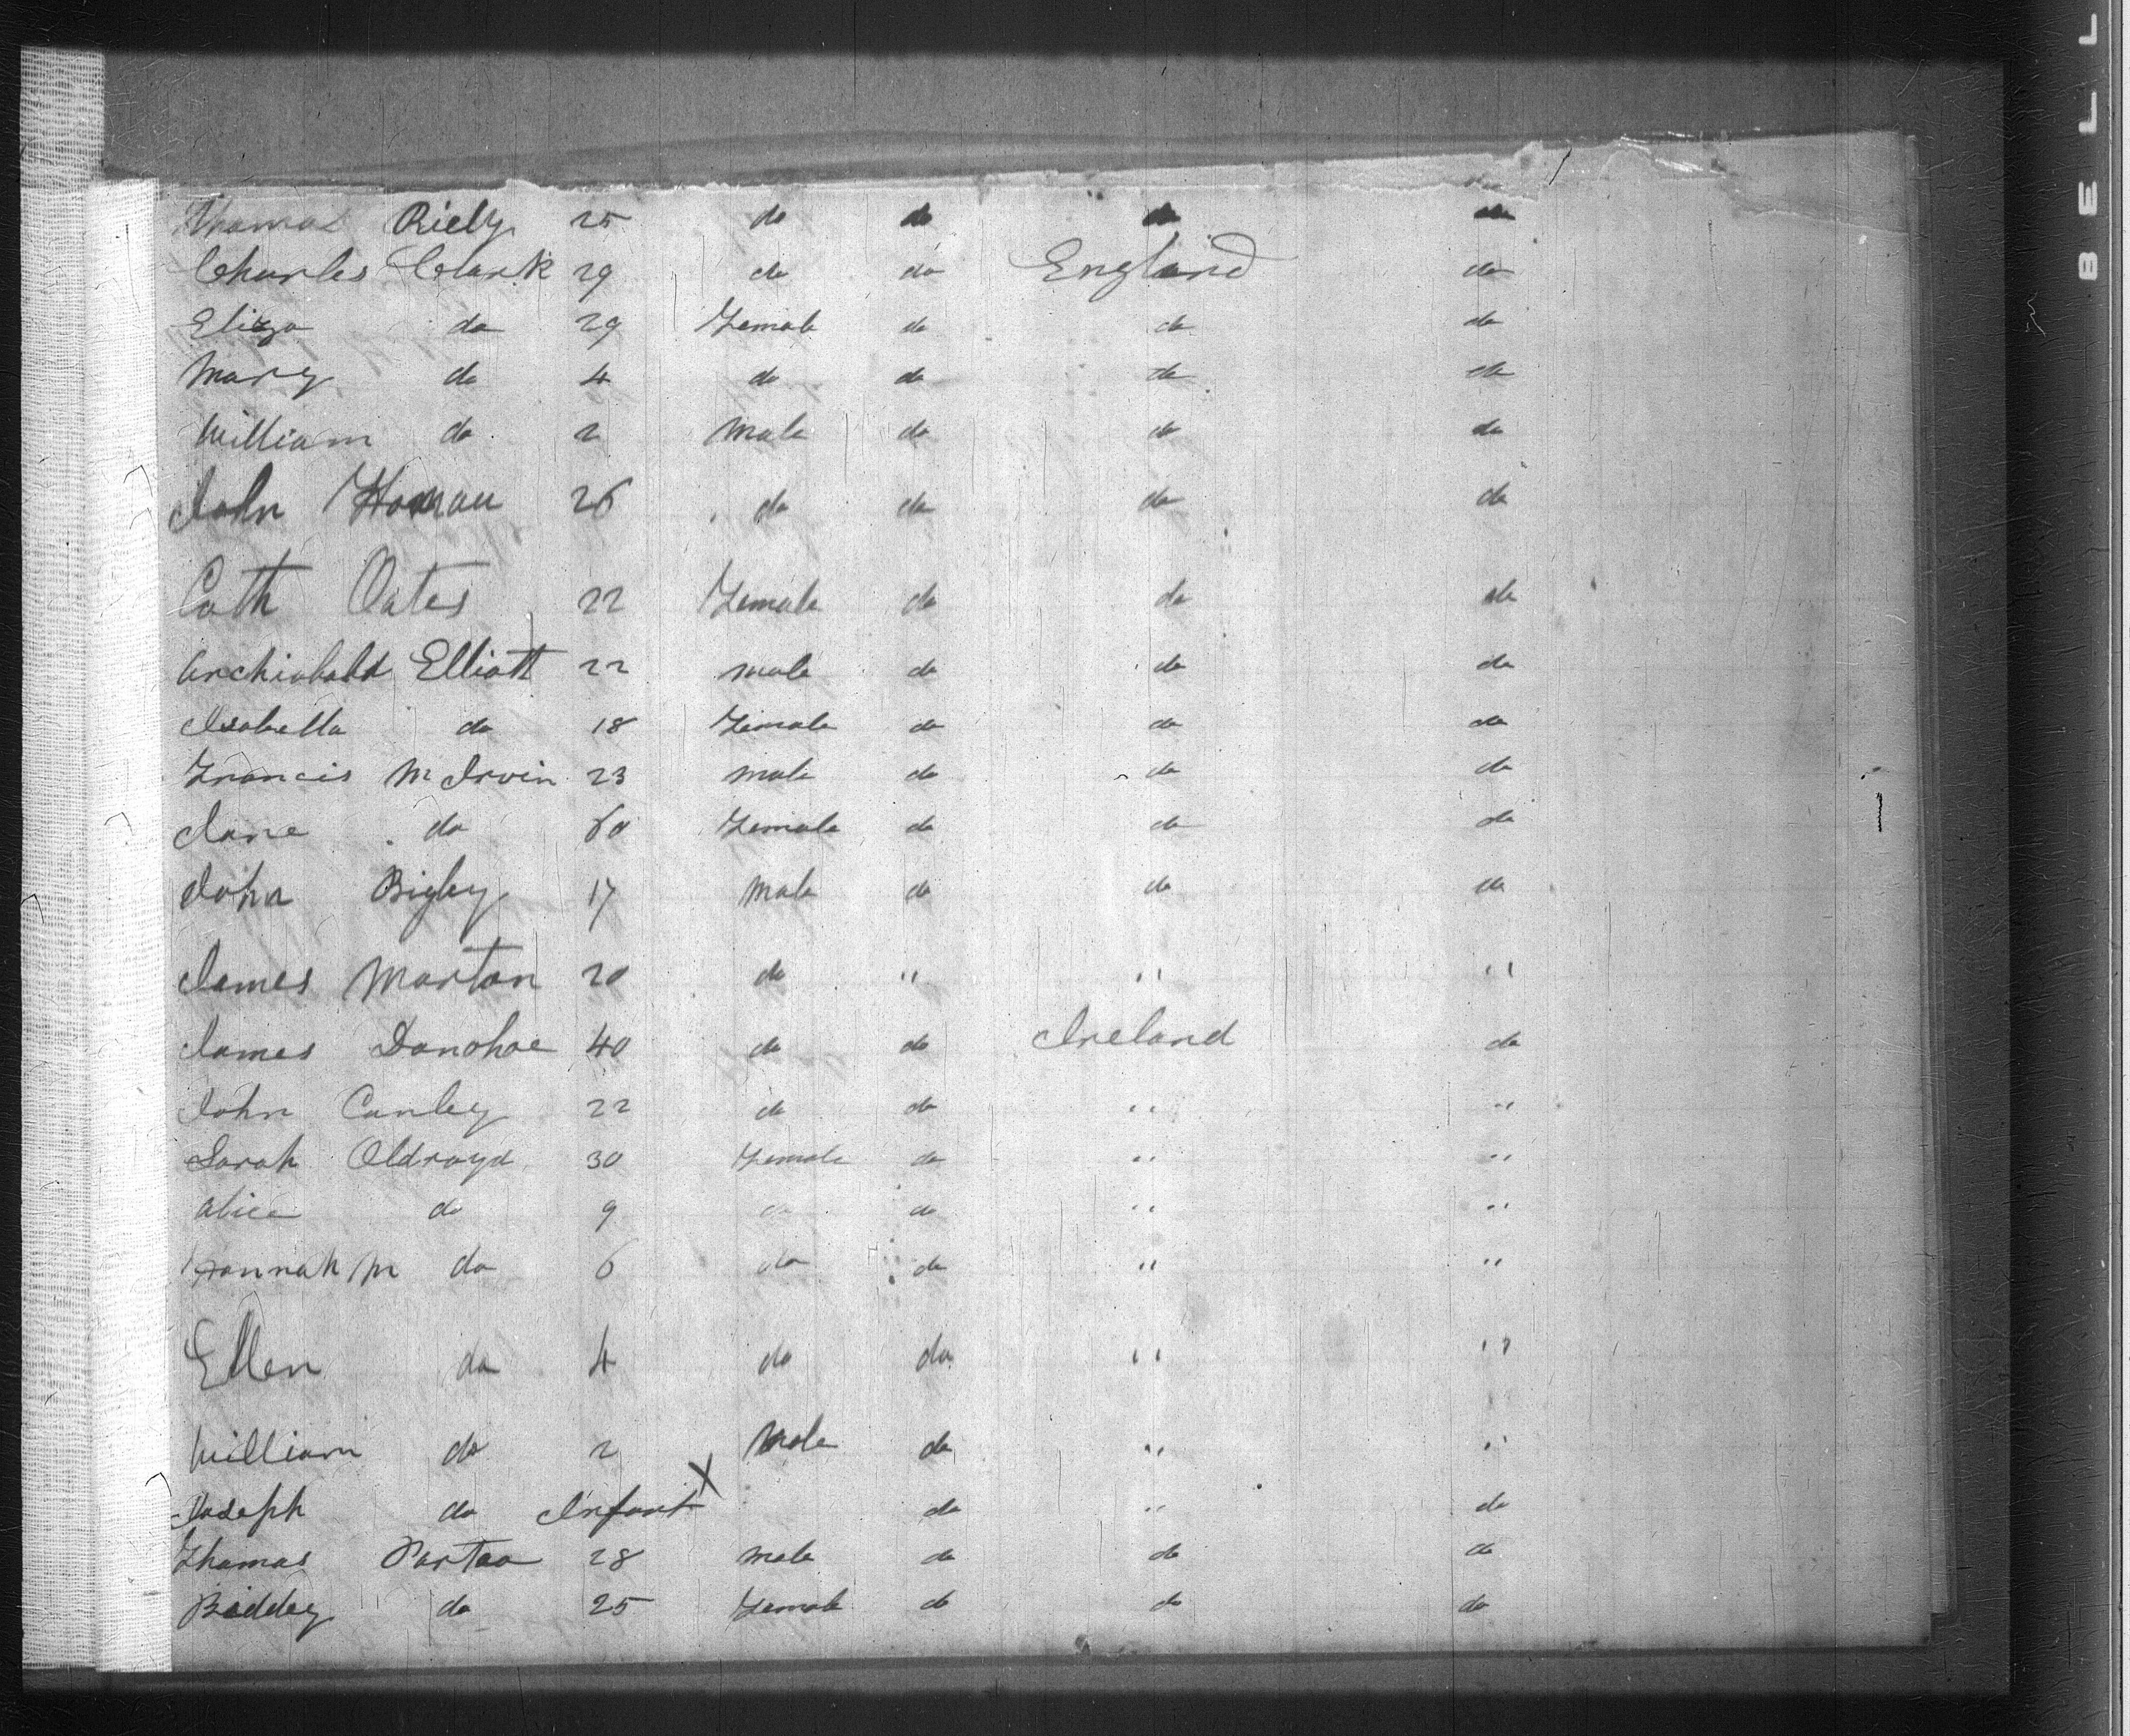 Thomas Rielly 25 do do do do
Charles Clark 29 do do England do
Eliza do 29 Female do do do
Mary do 4 do do do do
William do 2 Male do do do
John 26 do do do do
Cath Oates 22 Female do do do
Archiabald Elliott 22 male do do do
Isabella do 18 Female do do do
Francis McIrvin 23 male do do do
Jane do 60 Female do do do
John Bigley 17 Male do do do
James Morton 20 do " " "
James Donohoe 40 do do Ireland do
John Conley 22 do do " "
Sarah Oldroyd 30 Female do " "
Alice do 9 do do " "
Hannah M do 6 do do " "
Ellen do 4 do do " "
William do 2 Male do " "
Joseph do Infant X do " do
Thomas 28 Male do do do
Biddey do 25 Female do do do
BELL